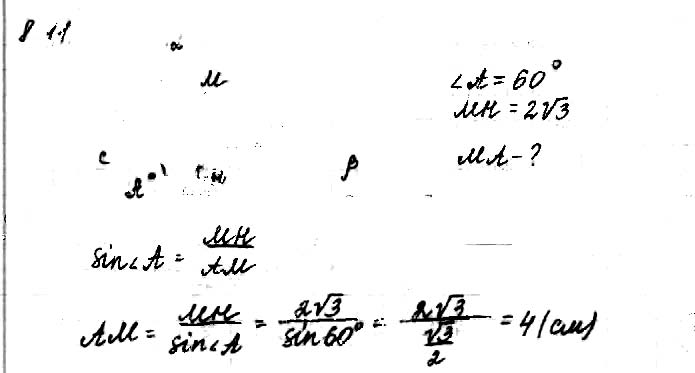 8 11
α
M
∠A = 60°
MH = 2√3
MA - ?
c
A
H
β
sin∠A = MH/AM
AM = MH/sin∠A = 2√3/sin60° = 2√3/(√3/2) = 4 (см)